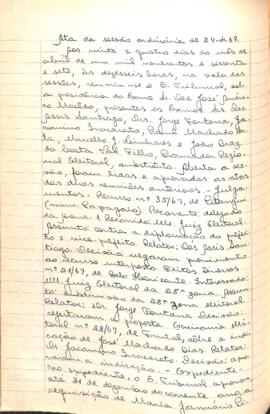 Ata da sessão ordinária de 24-4-67.
Aos vinte e quatro dias do mês de
abril de um mil novecentos e sessenta
e sete, às dezesseis horas, na sala das
sessões, reuniu-se o E. Tribunal, sob
a presidência do Exmo. Sr. Des. José
Macedo, presentes os Exmos. Srs. Des.
Assis Santiago, Drs. Jorge Fontana, Ja-
comino Inacarato,
ta, J. e João Braz
da Costa Val Filho, Procurador Regio-
nal Eleitoral, substituto. Aberta a ses-
são, foram lidas e aprovadas as atas
das duas reuniões anteriores. - Julga-
mentos: Recurso nº 35/67, de Pitangui
(mun. Papagaio) Recorrente: delegado
da Arena. Recorrido: MM. Juiz Eleitoral.
Assunto: contra a diplomação do prefei-
to e vice-prefeito. Relator: Des. Assis San-
tiago. Decisão: negaram provimento
ao recurso interposto. Feitos Diversos
nº 21/67, de Belo Horizonte. Interessado:
MM. Juiz Eleitoral da 28ª zona. Assun-
to: da 28ª zona eleitoral.
Relator: Dr. Jorge Fontana. Decisão:
rejeitaram a proposta.
nº 28/67, de sobre a indi-
cação de José Machado Dias. Relator:
Dr. Jacomino Inacarato. Decisão: apro-
varam a indicação. - Expediente -
expediente. O E. Tribunal aprovou
até 31 de dezembro do corrente ano, a
requisição de Maria